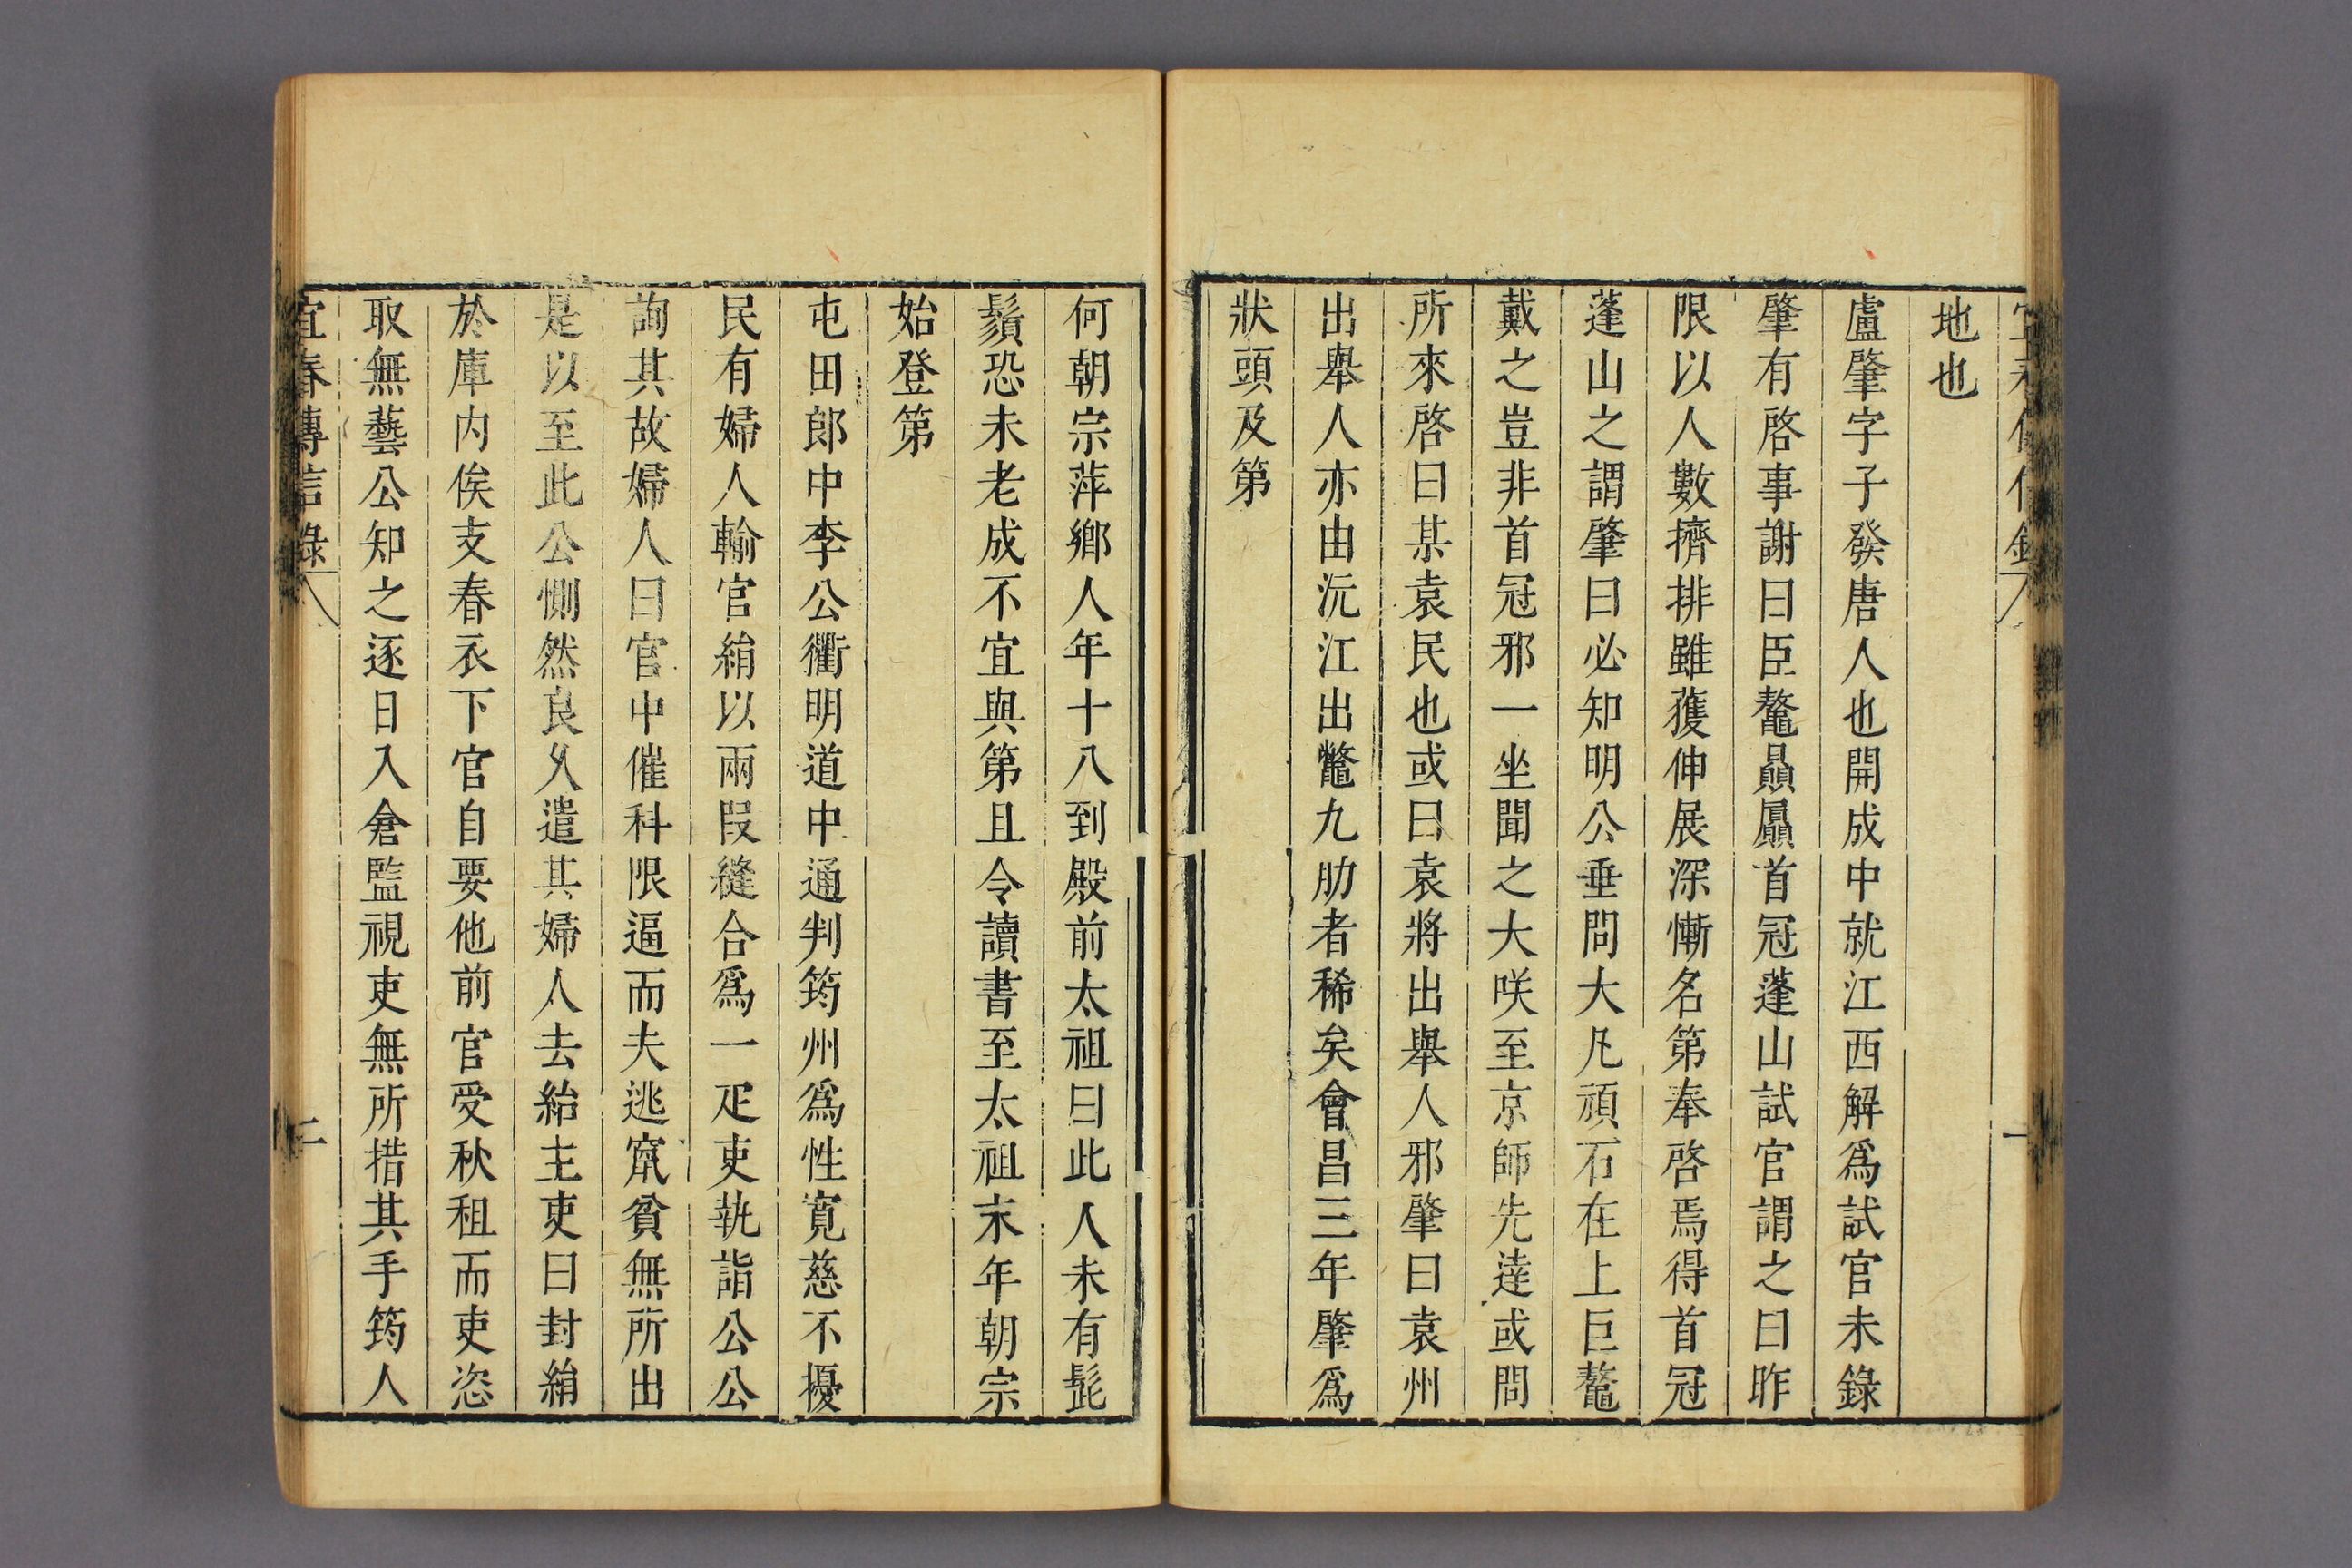 地也
盧肇字子發唐人也開成中就江西解爲試官未錄
肇有啓事謝曰臣鼇贔屭首冠蓬山試官謂之曰昨
限以人數擠排雖獲伸展深慚名第奉啓焉得首冠
蓬山之謂肇曰必知明公垂問大凡頑石在上巨鼇
戴之豈非首冠邪一坐聞之大咲至京師先達或問
所來啓曰某袁民也或曰袁將出舉人邪肇曰袁州
出舉人亦由沅江出鼈九肋者稀矣會昌三年肇爲
狀頭及第
何朝宗萍鄉人年十八到殿前太祖曰此人未有髭
鬚恐未老成不宜與第且令讀書至太祖末年朝宗
始登第
屯田郎中李公衢明道中通判筠州爲性寬慈不擾
民有婦人輸官絹以兩段縫合爲一疋吏執詣公公
詢其故婦人曰官中催科限逼而夫逃竄貧無所出
是以至此公惻然良乆遣其婦人去紿主吏曰封絹
於庫内俟支春衣下官自要他前官受秋租而吏恣
取無藝公知之逐日入倉監視吏無所措其手筠人
宜春傳信錄 二